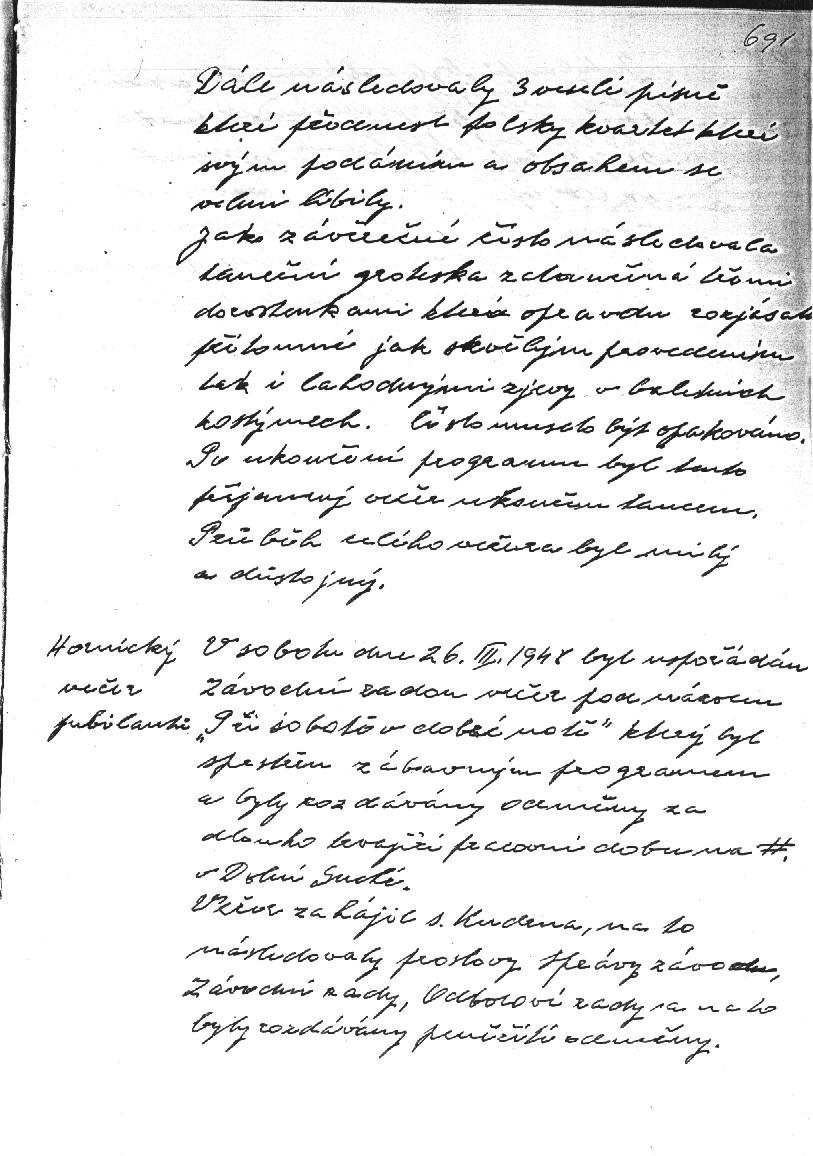 691
Dále následovaly 3 veselé písně
které přednesl polský kvartet které
svým podáním a obsahem se
velmi líbily.
Jako závěrečné číslo následovala
taneční groteska zatančená třemi
dorostenkami která opravdu rozjásala
přítomné jak skvělým provedením
tak i lahodnými zjevy v baletních
kostýmech. Číslo muselo být opakováno.
Po ukončení programu byl tento
příjemný večer ukončen tancem.
Průběh celého večera byl milý
a důstojný.
Hornický
večer
jubilantů
V sobotu dne 26. III. 1948 byl uspořádán
Závodní radou večer pod názvem
„Při sobotě v dobré notě" který byl
spestřen zábavným programem
a byly rozdávány odměny za
dlouho trvající pracovní dobu na
v Dolní Suché.
Večer zahájil s. Kudena, na to
následovaly proslovy Správy závodu,
Závodní rady, Odborové rady a na to
byly rozdávány peněžité odměny.